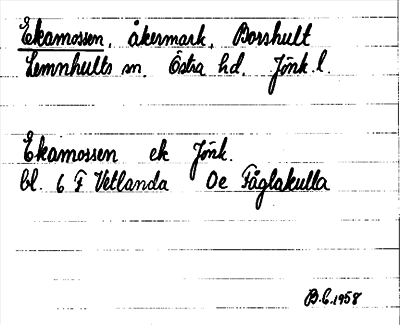 Ekamossen, åkermark, Borshult
Lemnhults sn. Östra hd. Jönk. l.
Ekamossen ek Jönk.
bl. 6 F Vetlanda 0e Fåglakulla
B.C. 1958